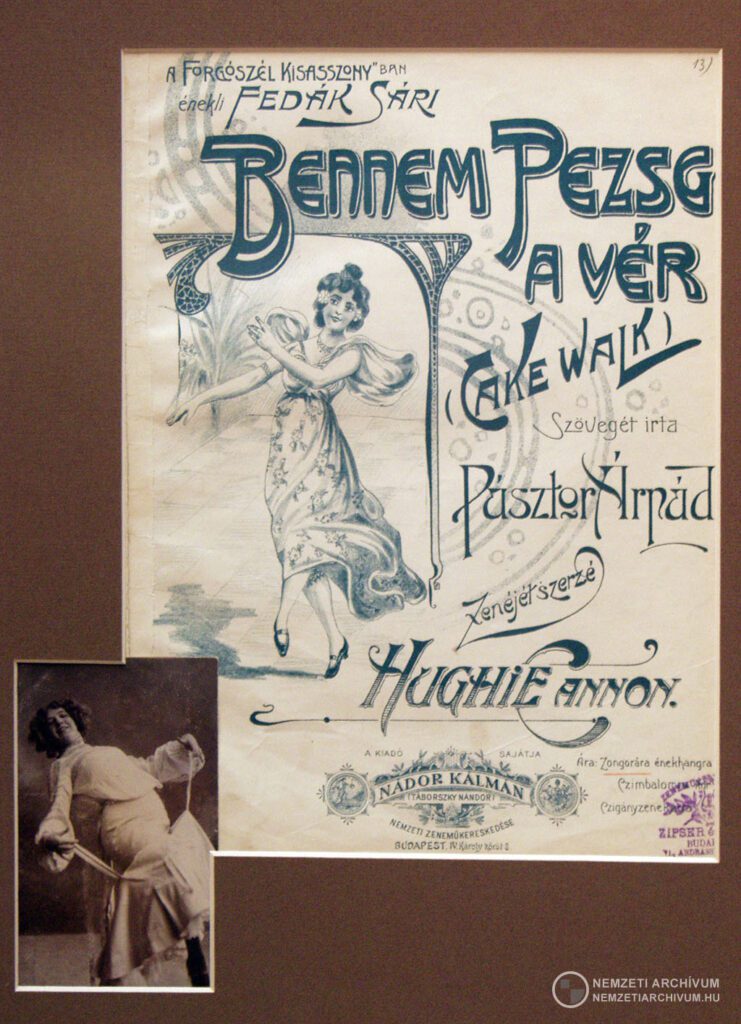 A FORGÓSZÉL KISASSZONY"BAN
énekli FEDÁK SÁRI
13)
BENNEM PEZSG
A VÉR
(CAKE WALK)
Szövegét irta
Pásztor Árpád
Zenéjét szerzé
HUGHIE CANNON.
A KIADÓ SAJÁTJA
NÁDOR KÁLMÁN
(TÁBORSZKY NÁNDOR)
NEMZETI ZENEMŰKERESKEDÉSE
BUDAPEST, IV. Károly körút 8
Ára: Zongorára énekhangra
Czimbalomra
Czigányzene
ZIPSER
BUDA
VI., ANDRÁS
NEMZETI ARCHÍVUM
NEMZETIARCHIVUM.HU